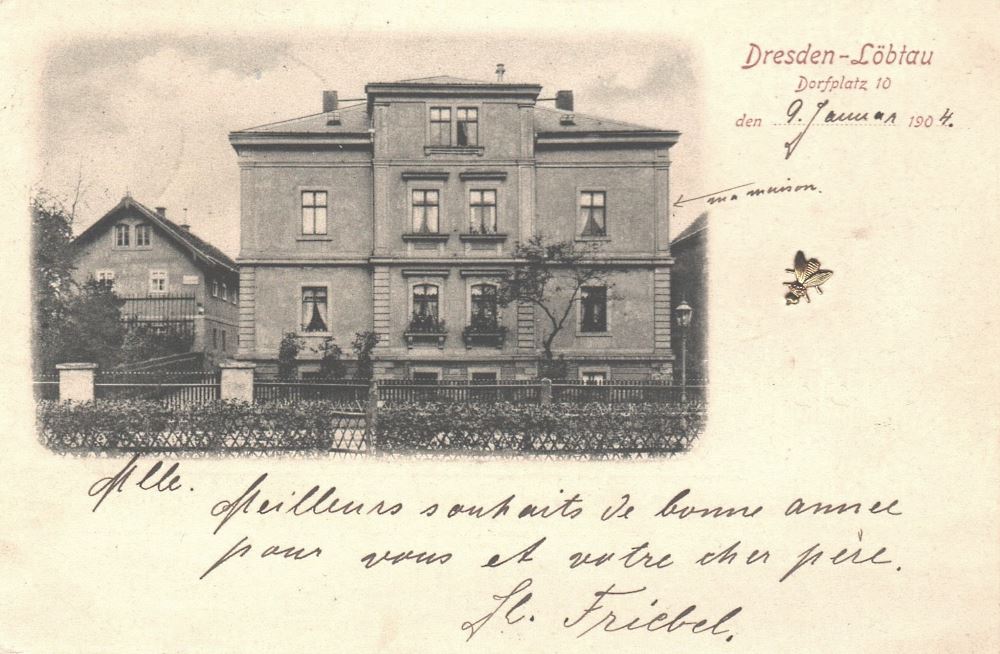 Dresden-Löbtau
Dorfplatz 10
den 9. Januar 1904.
ma maison.
Mlle.
Meilleurs souhaits de bonne annee
pour vous et votre cher père.
Friebel.